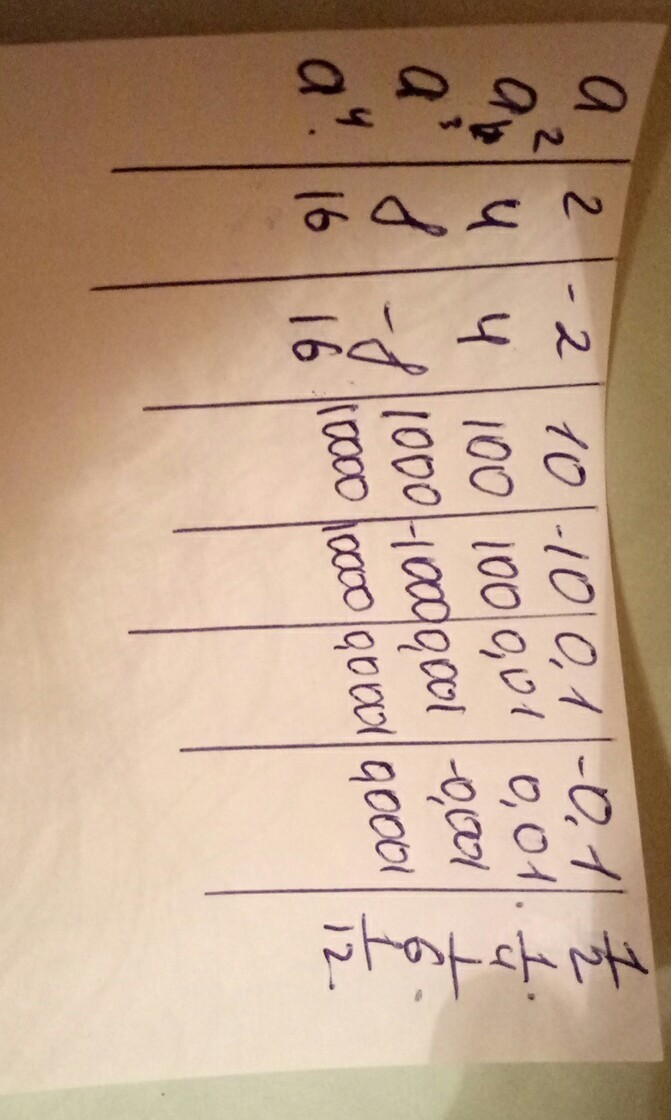 a 2 -2 10 -10 0,1 -0,1 1/2
a² 4 4 100 100 0,01 0,01 1/4
a³ 8 -8 1000 -1000 0,001 -0,001 1/6
a⁴ 16 16 10000 10000 0,0001 0,0001 1/12